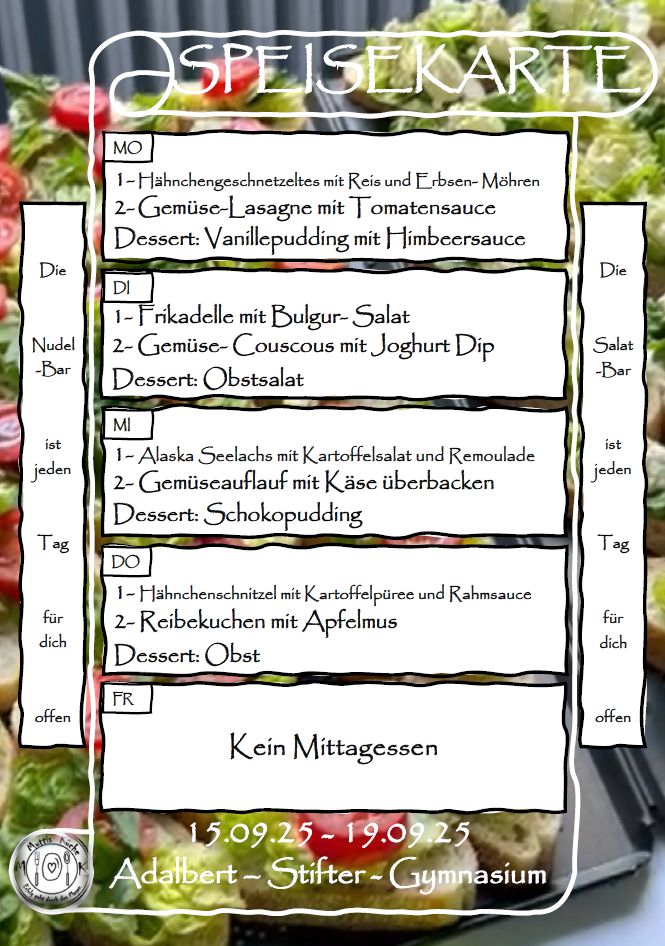 SPEISEKARTE
MO
1- Hähnchengeschnetzeltes mit Reis und Erbsen- Möhren
2- Gemüse-Lasagne mit Tomatensauce
Dessert: Vanillepudding mit Himbeersauce
DI
1- Frikadelle mit Bulgur- Salat
2- Gemüse- Couscous mit Joghurt Dip
Dessert: Obstsalat
MI
1- Alaska Seelachs mit Kartoffelsalat und Remoulade
2- Gemüseauflauf mit Käse überbacken
Dessert: Schokopudding
DO
1- Hähnchenschnitzel mit Kartoffelpüree und Rahmsauce
2- Reibekuchen mit Apfelmus
Dessert: Obst
FR
Kein Mittagessen
Die
Nudel
-Bar
ist
jeden
Tag
für
dich
offen
Die
Salat
-Bar
ist
jeden
Tag
für
dich
offen
15.09.25 - 19.09.25
Adalbert – Stifter - Gymnasium
Muttis Küche
M K